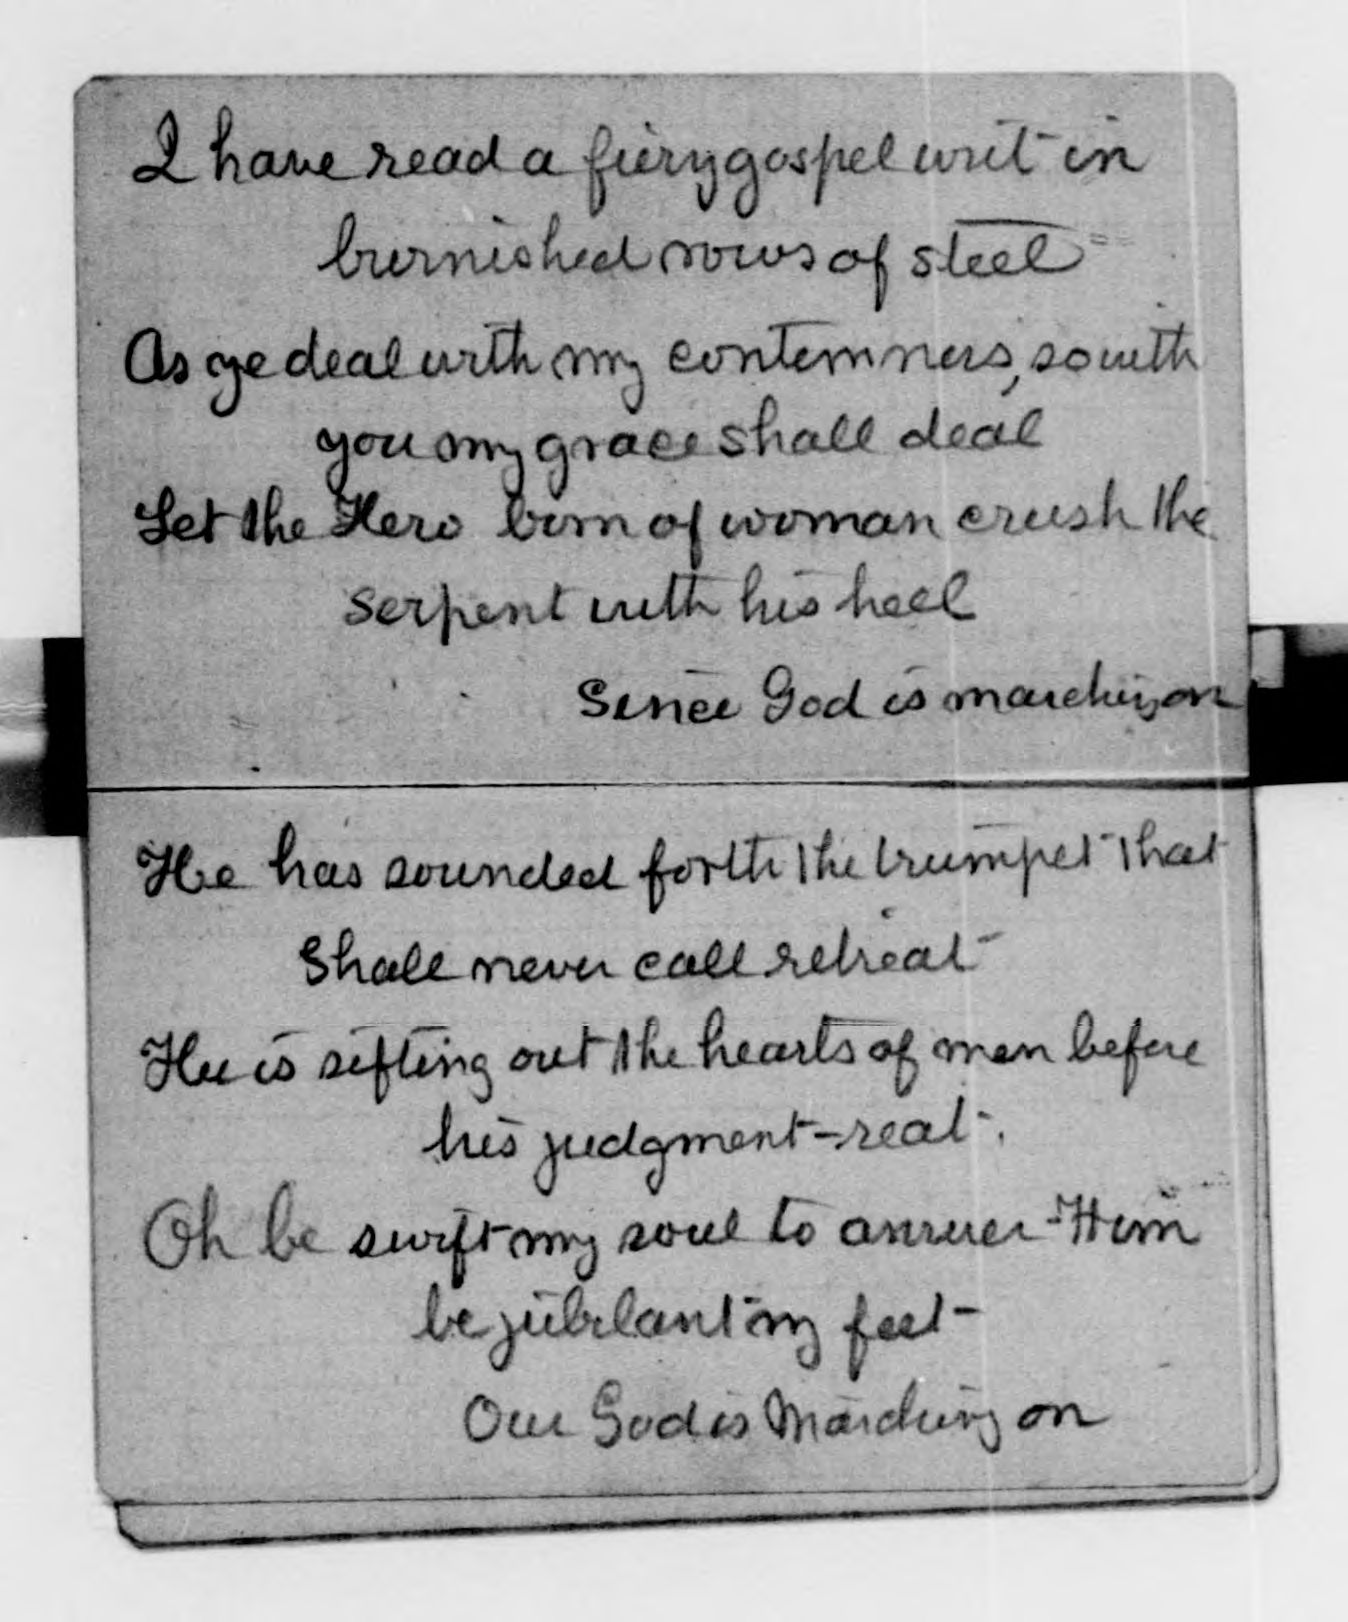 I have read a fiery gospel writ in
burnished rows of steel
As ye deal with my contemners, so with
you my grace shall deal
Let the Hero born of woman crush the
serpent with his heel
Since God is marching on
He has sounded forth the trumpet that
shall never call retreat
He is sifting out the hearts of men before
his judgment-seat.
Oh be swift my soul to answer Him
be jubilant my feet-
Our God is Marching on